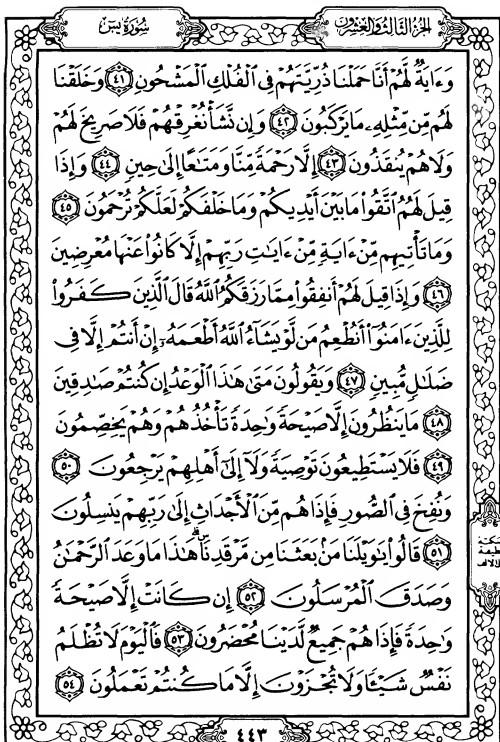 سُورَةُ يسٓ
الجُزْءُ الثَّالِثُ وَالعِشْرُونَ
وَءَايَةٌ لَّهُمْ أَنَّا حَمَلْنَا ذُرِّيَّتَهُمْ فِى ٱلْفُلْكِ ٱلْمَشْحُونِ ٤١ وَخَلَقْنَا
لَهُم مِّن مِّثْلِهِۦ مَا يَرْكَبُونَ ٤٢ وَإِن نَّشَأْ نُغْرِقْهُمْ فَلَا صَرِيخَ لَهُمْ
وَلَا هُمْ يُنقَذُونَ ٤٣ إِلَّا رَحْمَةً مِّنَّا وَمَتَٰعًا إِلَىٰ حِينٍ ٤٤ وَإِذَا
قِيلَ لَهُمُ ٱتَّقُوا۟ مَا بَيْنَ أَيْدِيكُمْ وَمَا خَلْفَكُمْ لَعَلَّكُمْ تُرْحَمُونَ ٤٥
وَمَا تَأْتِيهِم مِّنْ ءَايَةٍ مِّنْ ءَايَٰتِ رَبِّهِمْ إِلَّا كَانُوا۟ عَنْهَا مُعْرِضِينَ
٤٦ وَإِذَا قِيلَ لَهُمْ أَنفِقُوا۟ مِمَّا رَزَقَكُمُ ٱللَّهُ قَالَ ٱلَّذِينَ كَفَرُوا۟
لِلَّذِينَ ءَامَنُوٓا۟ أَنُطْعِمُ مَن لَّوْ يَشَآءُ ٱللَّهُ أَطْعَمَهُۥٓ إِنْ أَنتُمْ إِلَّا فِى
ضَلَٰلٍ مُّبِينٍ ٤٧ وَيَقُولُونَ مَتَىٰ هَٰذَا ٱلْوَعْدُ إِن كُنتُمْ صَٰدِقِينَ
٤٨ مَا يَنظُرُونَ إِلَّا صَيْحَةً وَٰحِدَةً تَأْخُذُهُمْ وَهُمْ يَخِصِّمُونَ
٤٩ فَلَا يَسْتَطِيعُونَ تَوْصِيَةً وَلَآ إِلَىٰٓ أَهْلِهِمْ يَرْجِعُونَ ٥٠
وَنُفِخَ فِى ٱلصُّورِ فَإِذَا هُم مِّنَ ٱلْأَجْدَاثِ إِلَىٰ رَبِّهِمْ يَنسِلُونَ
٥١ قَالُوا۟ يَٰوَيْلَنَا مَنۢ بَعَثَنَا مِن مَّرْقَدِنَاۗ هَٰذَا مَا وَعَدَ ٱلرَّحْمَٰنُ
وَصَدَقَ ٱلْمُرْسَلُونَ ٥٢ إِن كَانَتْ إِلَّا صَيْحَةً
وَٰحِدَةً فَإِذَا هُمْ جَمِيعٌ لَّدَيْنَا مُحْضَرُونَ ٥٣ فَٱلْيَوْمَ لَا تُظْلَمُ
نَفْسٌ شَيْـًٔا وَلَا تُجْزَوْنَ إِلَّا مَا كُنتُمْ تَعْمَلُونَ ٥٤
٤٤٣